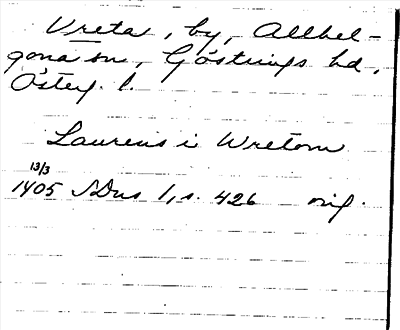 Vreta, by, Allhel-
gona sn, Göstrings hd,
Österg. l.
Laurens i Wretom
13/3
1405 SDns 1, s. 426 orig.